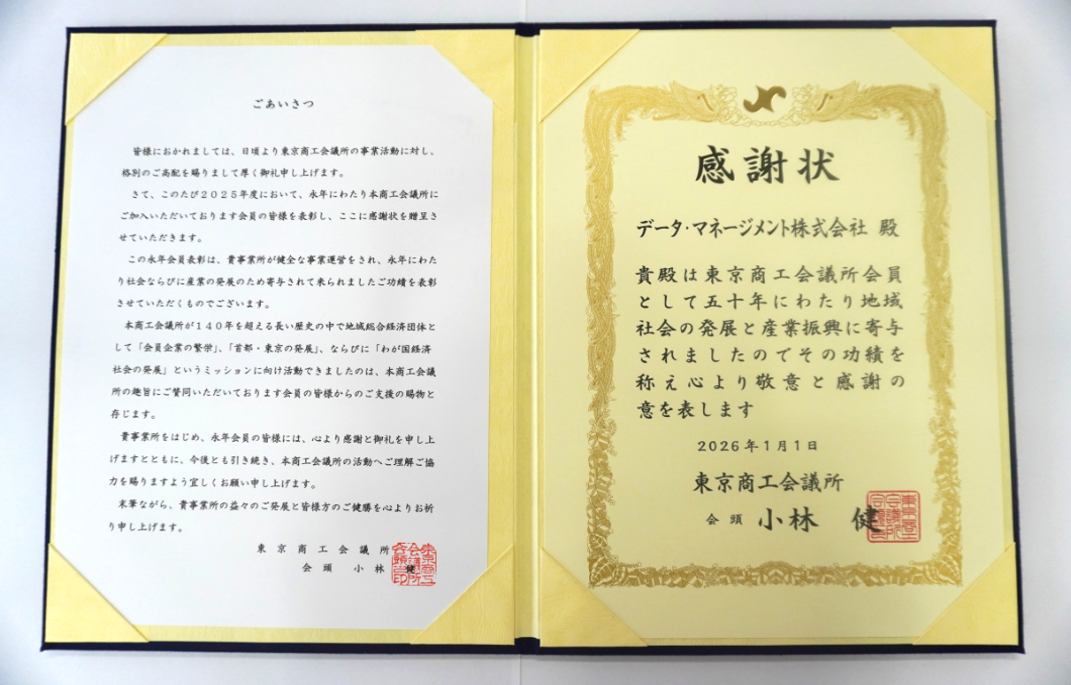 ごあいさつ
皆様におかれましては、日頃より東京商工会議所の事業活動に対し、
格別のご高配を賜りまして厚く御礼申し上げます。
さて、このたび2025年度において、永年にわたり本商工会議所に
ご加入いただいております会員の皆様を表彰し、ここに感謝状を贈呈さ
せていただきます。
この永年会員表彰は、貴事業所が健全な事業運営をされ、永年にわた
り社会ならびに産業の発展のため寄与されて来られましたご功績を表彰
させていただくものでございます。
本商工会議所が140年を超える長い歴史の中で地域総合経済団体と
して「会員企業の繁栄」、「首都・東京の発展」、ならびに「わが国経済
社会の発展」というミッションに向け活動できましたのは、本商工会議
所の趣旨にご賛同いただいております会員の皆様からのご支援の賜物と
存じます。
貴事業所をはじめ、永年会員の皆様には、心より感謝と御礼を申し上
げますとともに、今後とも引き続き、本商工会議所の活動へご理解ご協
力を賜りますよう宜しくお願い申し上げます。
末筆ながら、貴事業所の益々のご発展と皆様方のご健勝を心よりお祈
り申し上げます。
東京商工会議所
会頭 小林 健
感謝状
データ・マネージメント株式会社 殿
貴殿は東京商工会議所会員
として五十年にわたり地域
社会の発展と産業振興に寄与
されましたのでその功績を
称え心より敬意と感謝の
意を表します
2026年1月1日
東京商工会議所
会頭 小林 健